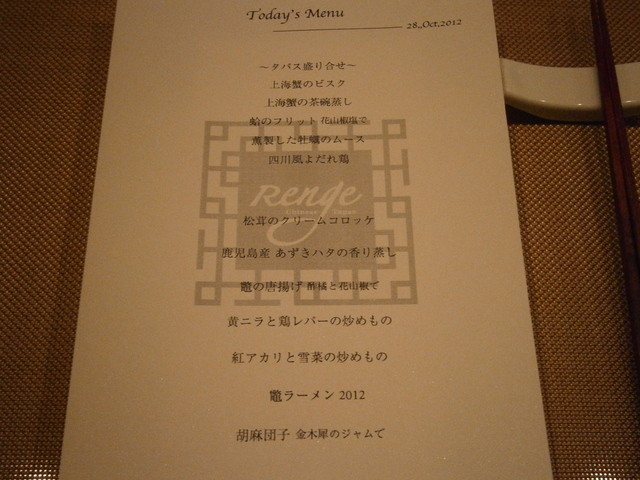 Today's Menu
28,,Oct,2012
～タパス盛り合せ～
上海蟹のビスク
上海蟹の茶碗蒸し
蛤のフリット 花山椒塩で
薫製した牡蠣のムース
四川風よだれ鶏
Renge
松茸のクリームコロッケ
鹿児島産 あずきハタの香り蒸し
鼈の唐揚げ 酢橘と花山椒で
黄ニラと鶏レバーの炒めもの
紅アカリと雪菜の炒めもの
鼈ラーメン 2012
胡麻団子 金木犀のジャムで